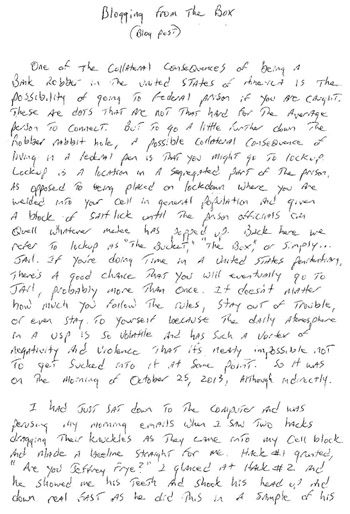 Blogging From The Box
(Blog Post)
One of The Collateral Consequences of being a
Bank Robber in The United States of America is The
possibility of going To Federal prison if you are caught.
These are dots That are not That hard for The average
person To connect. But To go a little further down The
robber rabbit hole, a possible Collateral Consequence of
living in a federal pen is That you might go To lockup.
Lockup is a location in a segregated part of The prison,
as opposed To being placed on lockdown where you are
welded into your cell in general population and given
a block of salt lick until The prison officials can
quell whatever melee has popped up. Back here we
refer To lockup as "The Bucket," "The Box," or simply...
Jail. If you're doing Time in a United States penitentiary,
There's a good chance That you will eventually go To
Jail, probably more Than once. It doesn't matter
how much you follow The rules, stay out of Trouble,
or even stay To yourself because The daily atmosphere
in a USP is so volatile and has such a vortex of
negativity and violence That it's nearly impossible not
To get sucked into it at some point. So it was
on The morning of October 25, 2013, although indirectly.
I had just sat down To The computer and was
perusing my morning emails when I saw Two hacks
dragging Their knuckles as They came into my cell block
and made a beeline straight for me. Hack #1 grunted,
"Are you Jeffrey Frye?" I glanced at Hack #2 and
he showed me his Teeth and shook his head up and
down real fast as he did This in a sample of his